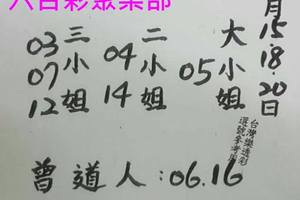 六合彩聚樂部
月15.18.20日
大小姐 05
二小姐 04 14
三小姐 03 07 12
台灣樂透彩
選號參考用
曾道人:06.16